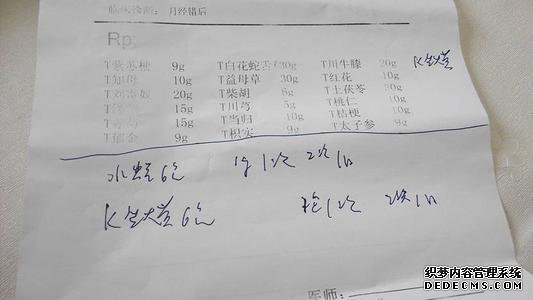 临床诊断： 月经错后
Rp:
T紫苏梗 9g T白花蛇舌 30g T川牛膝 20g
T知母 10g T益母草 30g T红花 10g
T刘寄奴 20g T柴胡 6g T土茯苓 30g
15g T川芎 5g T桃仁 10g
15g T当归 10g T桔梗 10g
T郁金 9g T枳实 9g T太子参 9g
水蛭6 1g 1次 2次1日
K生大黄6 1次 2次1日
医师:
织梦内容管理系统
DEDECMS.COM